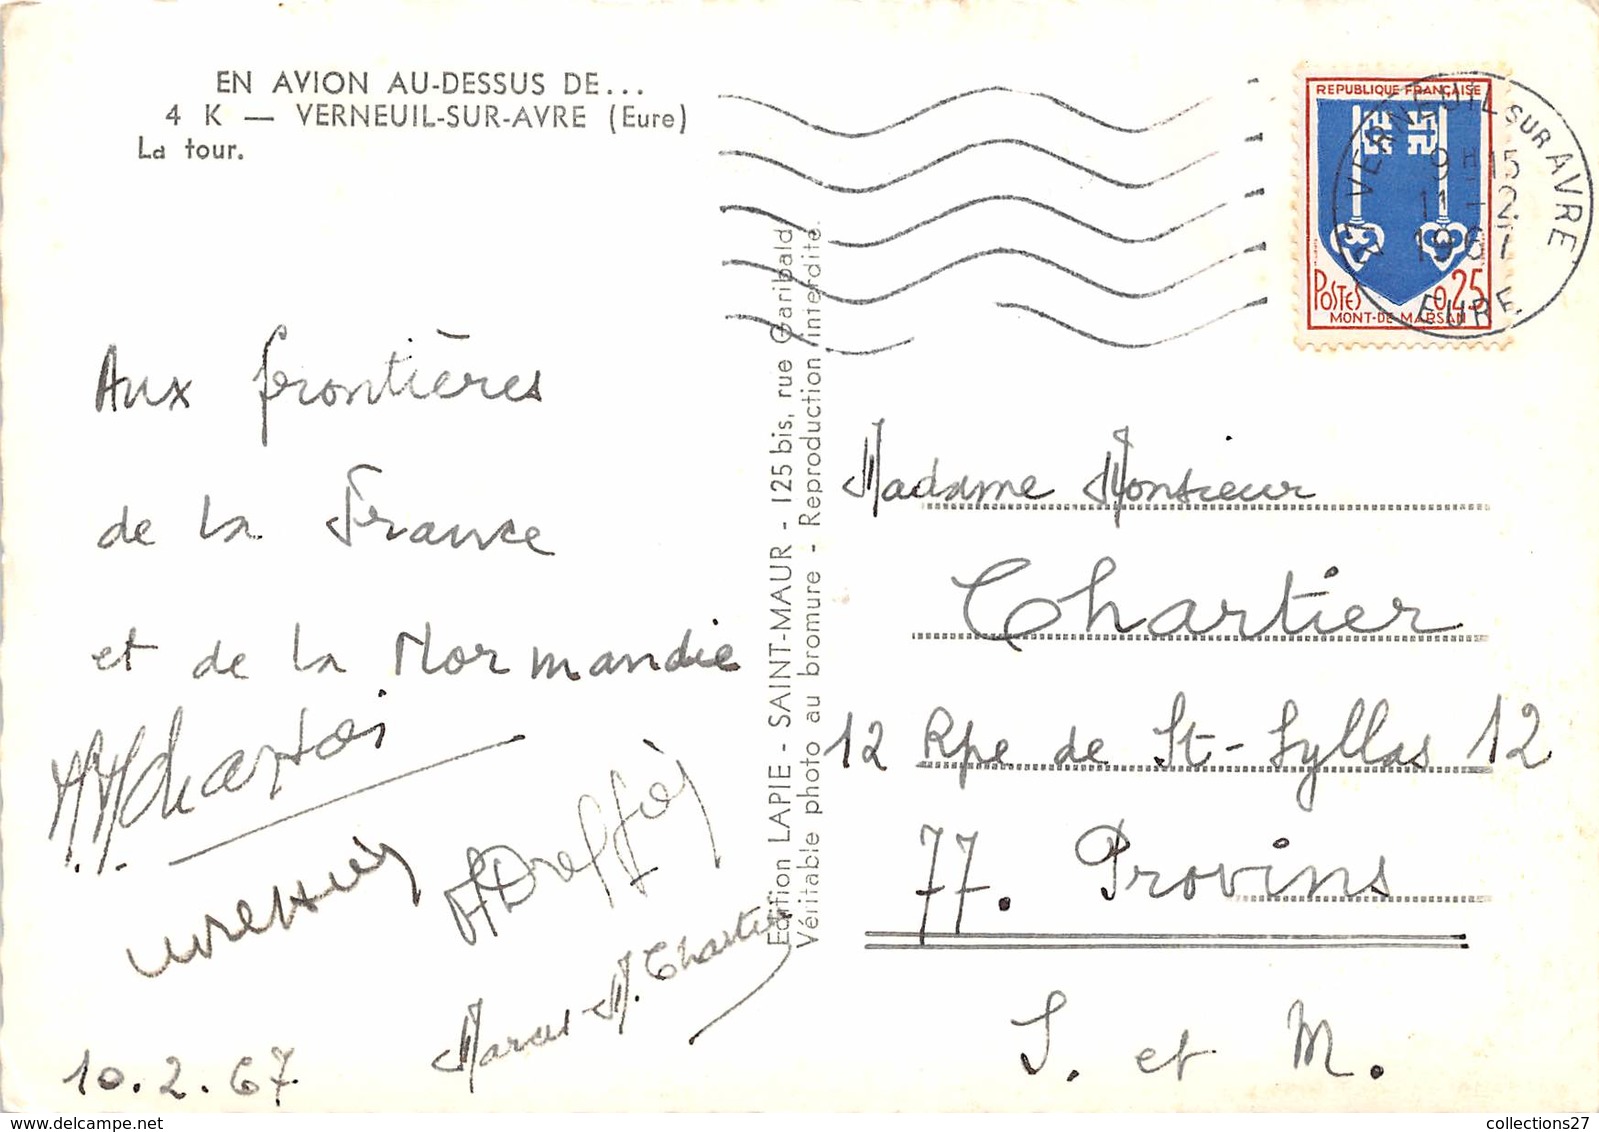 EN AVION AU-DESSUS DE...
4 K — VERNEUIL-SUR-AVRE (Eure)
La tour.
Aux frontières
de la France
et de la Normandie
Marcus M. Chartier
10.2.67
Edition LAPIE - SAINT-MAUR - 125 bis, rue Garibaldi
Véritable photo au bromure - Reproduction interdite.
REPUBLIQUE FRANÇAISE
POSTES 0,25
MONT-DE-MARSAN
27 VERNEUIL SUR AVRE
9H15
11-2
1967
EURE
Madame Monsieur
Chartier
12 Rpe de St-Syllas 12
77. Provins
S. et M.
collections27